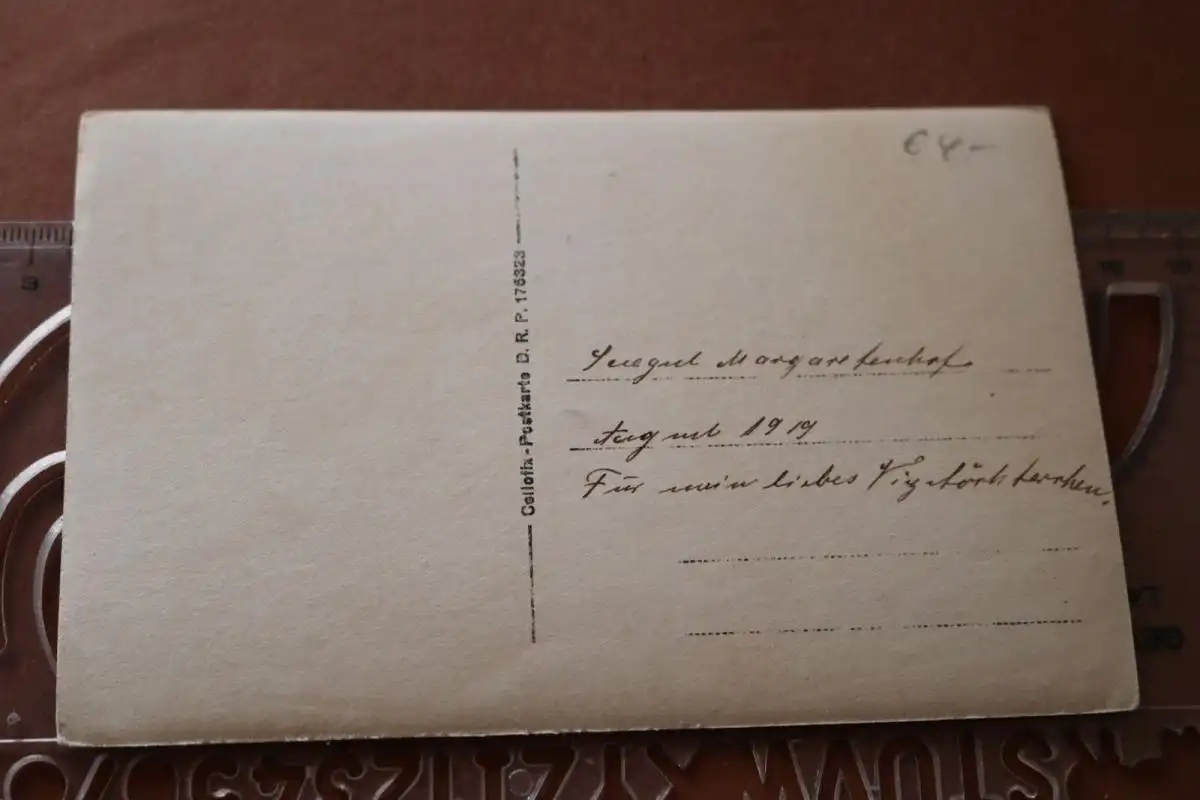 € 4-
Cellofix-Postkarte D. R. P. 176323
Margaretenhof
August 1919
Für mein liebes Vizetöchterchen.